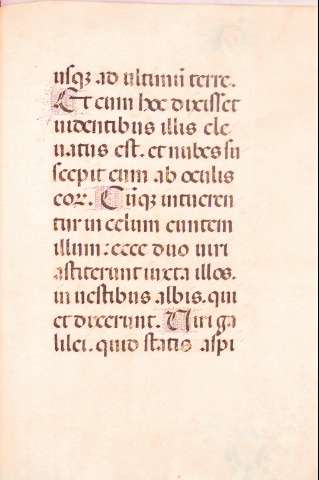 usqz ad ultimū terre.
Et cum hoc dixisset
uidentibus illis ele
uatus est. et nubes su
scepit eum ab oculis
eor. Cūqz intueren
tur in celum euntem
illum: ecce duo uiri
astiterunt iuxta illos.
in uestibus albis. qui
et dixerunt. Uiri ga
lilei. quid statis aspi